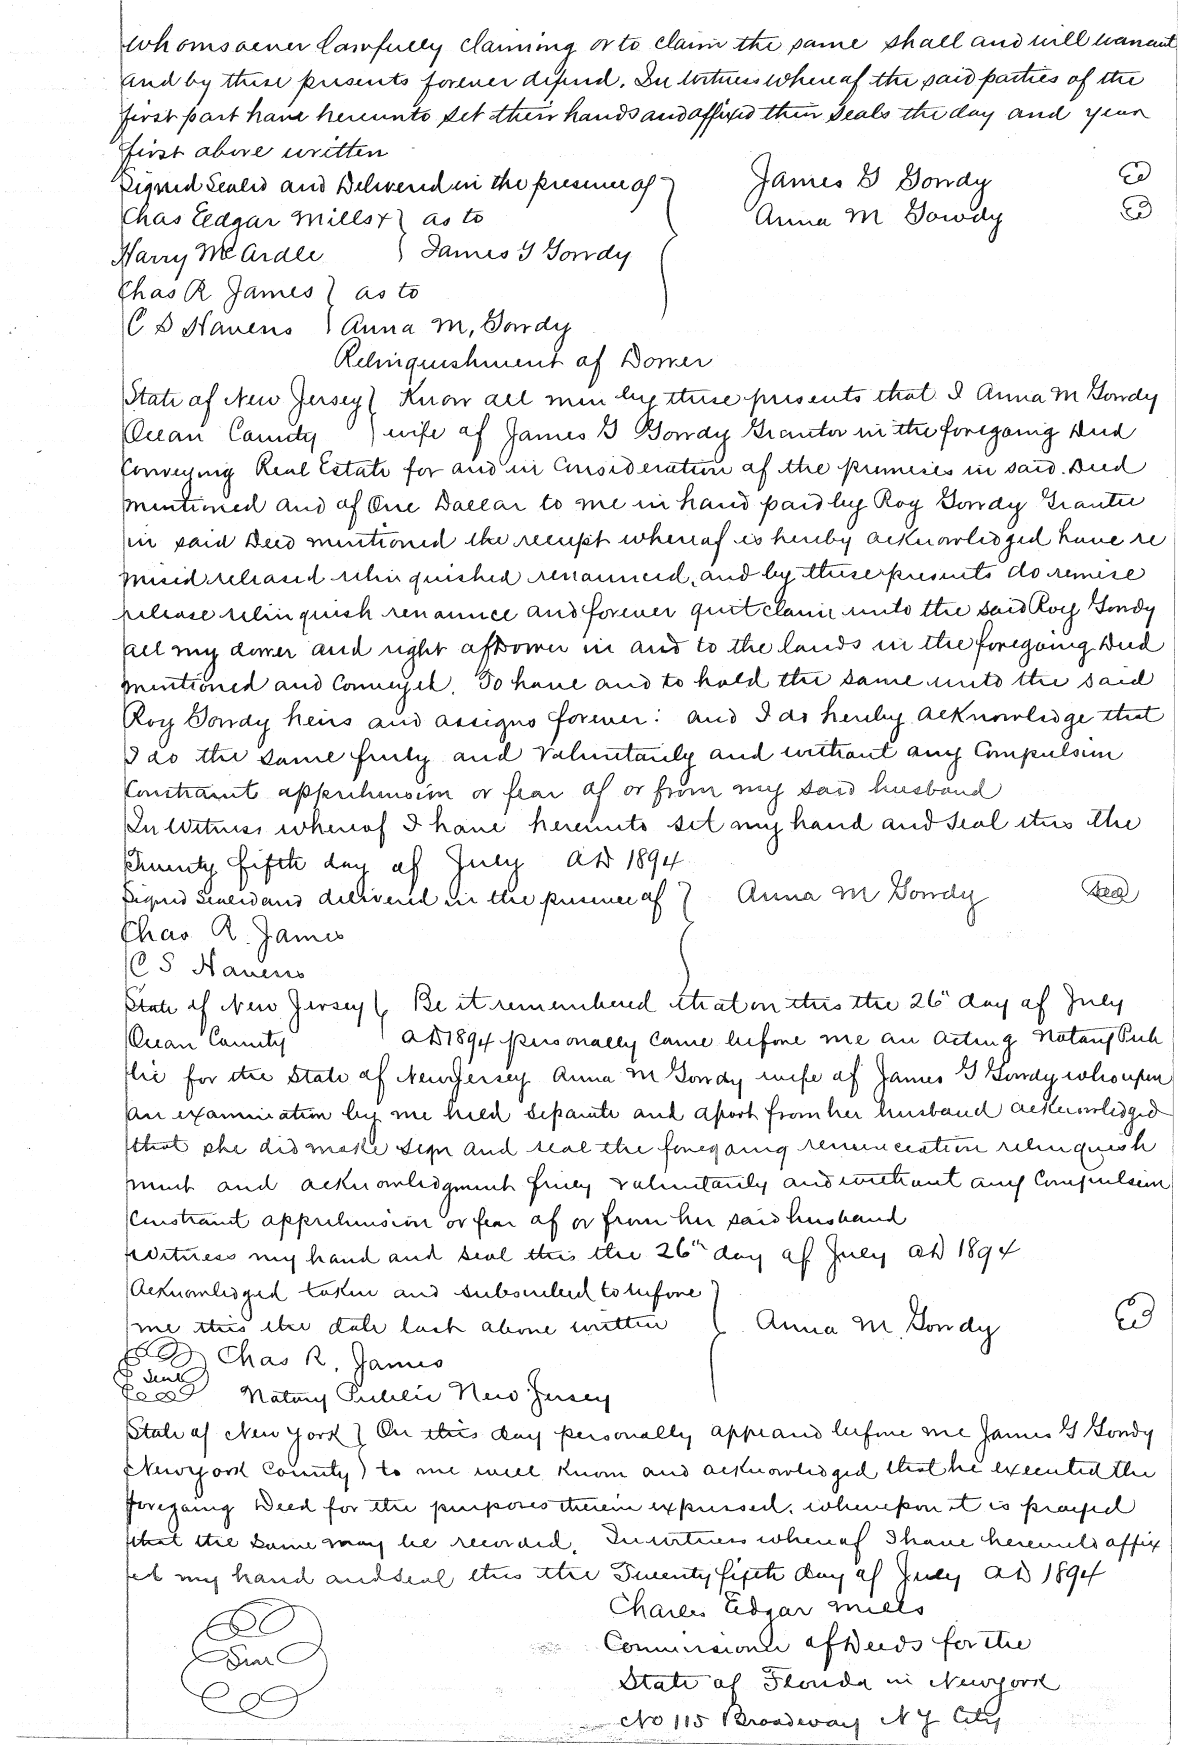 whomsoever lawfully claiming or to claim the same shall and will warrant
and by these presents forever defend. In witness whereof the said parties of the
first part have hereunto set their hands and affixed their seals the day and year
first above written
Signed Sealed and Delivered in the presence of } James G Gowdy
Chas Eedgar Mills } as to Anna M Gowdy
Harry McArdle } James G Gowdy
Chas R James } as to
C S Havens } Anna M, Gowdy
Relinquishment of Dower
State of New Jersey } Know all men by these presents that I Anna M Gowdy
Ocean County } wife of James G Gowdy Grantor in the foregoing Deed
Conveying Real Estate for and in Consideration of the premises in said Deed
mentioned and of One Dollar to me in hand paid by Roy Gowdy Grantee
in said Deed mentioned the receipt whereof is hereby acknowledged have re
mised released relinquished renounced, and by these presents do remise
release relinquish renounce and forever quit claim unto the said Roy Gowdy
all my dower and right of Dower in and to the lands in the foregoing Deed
mentioned and Conveyed. To have and to hold the same unto the said
Roy Gowdy heirs and assigns forever: and I do hereby acknowledge that
I do the same freely and Voluntarily and without any Compulsion
Constraint apprehension or fear of or from my said husband
In Witness whereof I have hereunto set my hand and seal this the
Twenty fifth day of July AD 1894
Signed Sealed and delivered in the presence of } Anna M Gowdy Seal
Chas R. James
C S Havens
State of New Jersey } Be it remembered that on this the 26" day of July
Ocean County AD 1894 personally came before me an acting Notary Pub
lic for the State of New Jersey Anna M Gowdy wife of James G Gowdy who upon
an examination by me held separate and apart from her husband acknowledged
that she did make sign and seal the foregoing renunciation relinquish
ment and acknowledgment freely voluntarily and without any Compulsion
Constraint apprehension or fear of or from her said husband
witness my hand and seal this the 26" day of July AD 1894
Acknowledged taken and subscribed to before }
me this the date last above written } Anna M. Gowdy
Chas R. James
Seal
Notary Public New Jersey
State of New York } On this day personally appeared before me James G Gowdy
New York County } to me well known and acknowledged that he executed the
foregoing Deed for the purposes therein expressed. whereupon it is prayed
that the same may be recorded. In witness whereof I have hereunto affix
ed my hand and seal this the Twenty fifth day of July AD 1894
Charles Edgar Mills
Seal Commissioner of Deeds for the
State of Florida in New York
No 115 Broadway N Y City